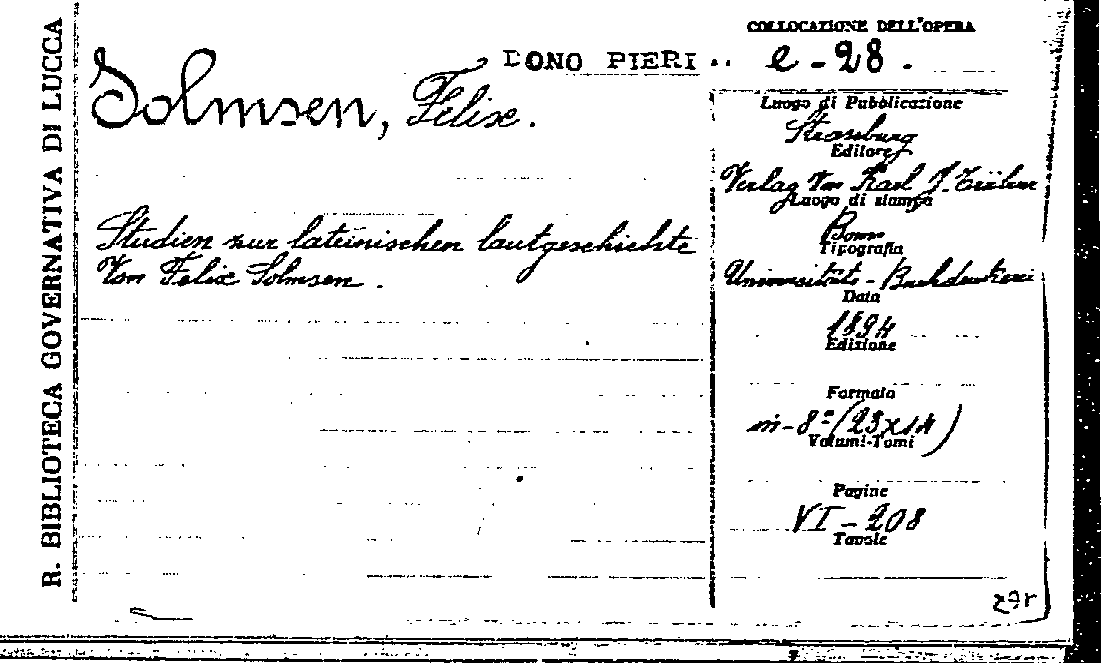 R. BIBLIOTECA GOVERNATIVA DI LUCCA
COLLOCAZIONE DELL'OPERA
DONO PIERI e-28.
Solmsen, Felix.
Studien zur lateinischen lautgeschichte
Von Felix Solmsen.
Luogo di Pubblicazione
Strassburg
Editore
Verlag von Karl J. Trübner
Luogo di stampa
Bonn
Tipografia
Universitäts-Buchdruckerei
Data
1894
Edizione
Formato
in-8° (23x14)
Volumi-Tomi
Pagine
VI-208
Tavole